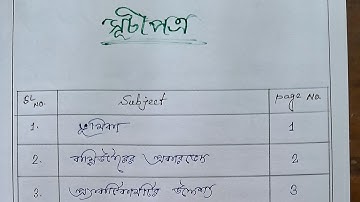 সূচীপত্র
SL NO. Subject page No
1. ভূমিকা 1
2. প্রকারভেদ 2
3. উদ্দেশ্য 3